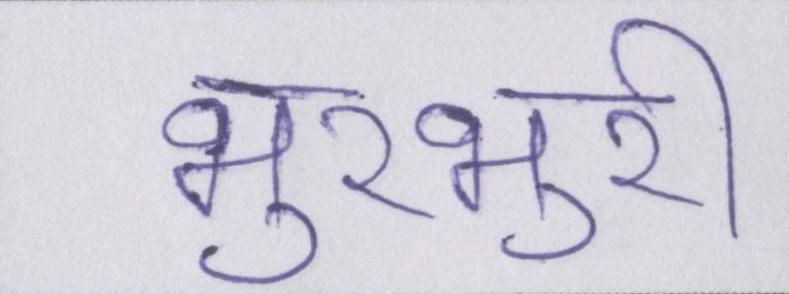 भुरभुरी